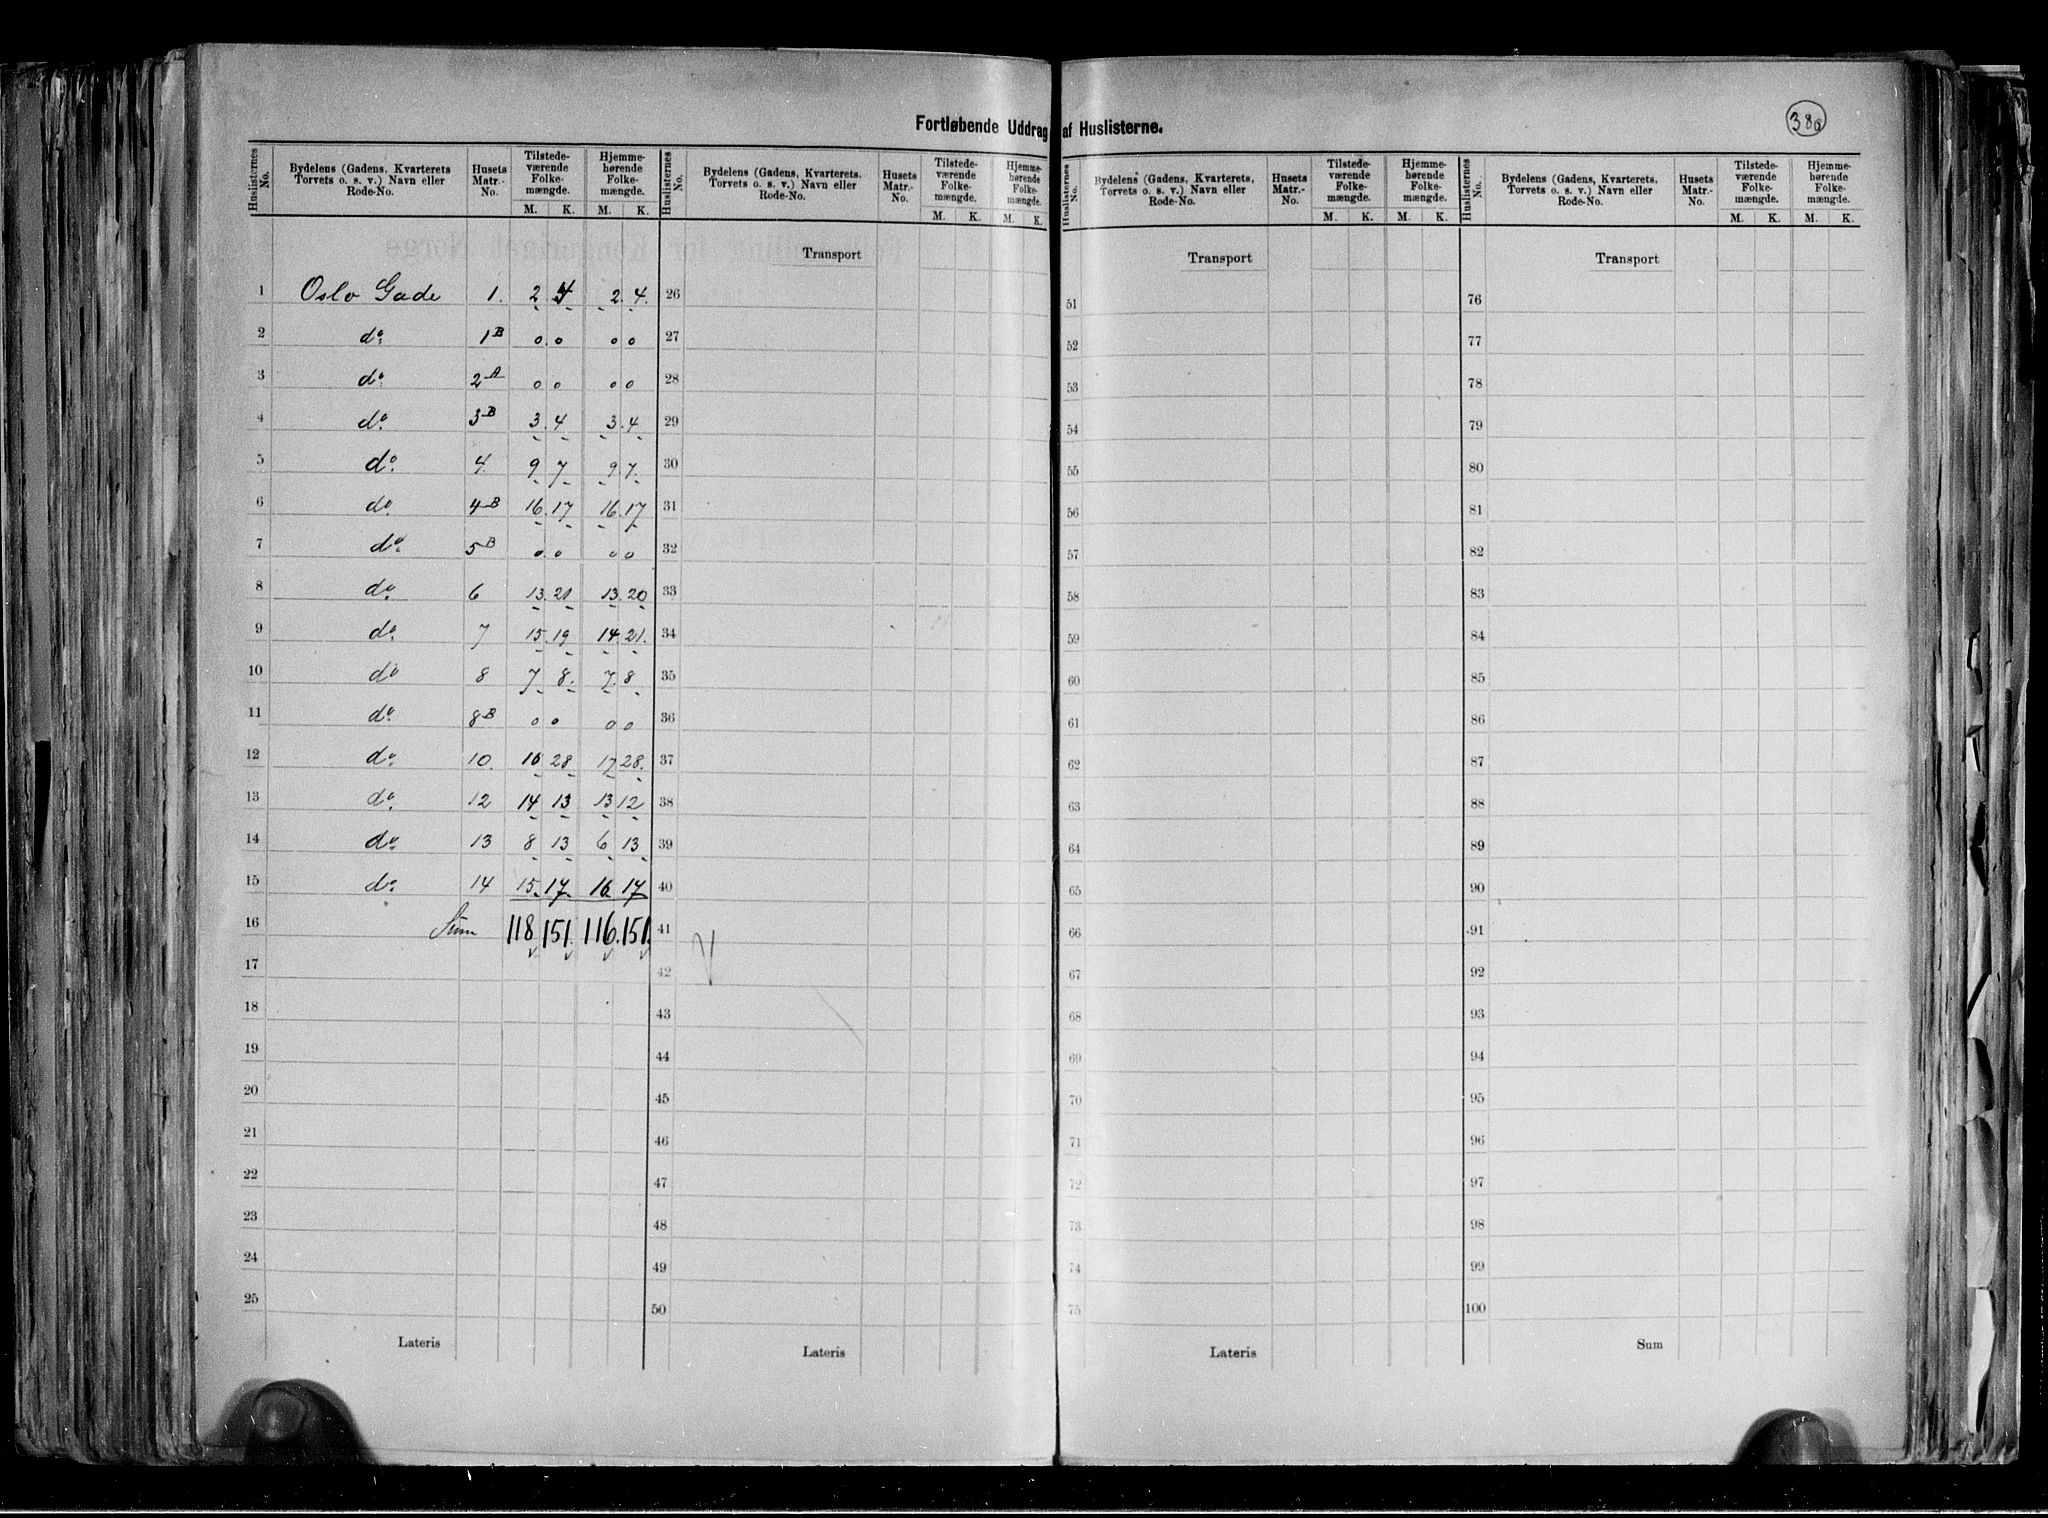 Fortløbende Uddrag af Huslisterne.
380
Huslisternes No. | Bydelens (Gadens, Kvarterets, Torvets o. s. v.) Navn eller Rode-No. | Husets Matr.-No. | Tilstedeværende Folkemængde. M. K. | Hjemmehørende Folkemængde. M. K.
1 Oslo Gade 1. 2. 4 2. 4.
2 do. 1B 0. 0 0 0
3 do. 2A 0 0 0 0
4 do. 3B 3. 4 3. 4
5 do. 4 9 7 9. 7.
6 do. 4B 16. 17 16. 17
7 do. 5B 0. 0 0 0
8 do. 6 13. 21 13. 20
9 do. 7 15. 19 14 21.
10 do 8 7 8. 7. 8
11 do. 8B 0 0 0 0
12 do. 10. 16 28 17 28.
13 do. 12 14 13 13 12
14 do. 13 8 13 6 13
15 do. 14 15. 17. 16 17
16 Sum 118 151. 116. 151.
17
18
19
20
21
22
23
24
25
Lateris
Huslisternes No. | Bydelens (Gadens, Kvarterets, Torvets o. s. v.) Navn eller Rode-No. | Husets Matr.-No. | Tilstedeværende Folkemængde. M. K. | Hjemmehørende Folkemængde. M. K.
Transport
26
27
28
29
30
31
32
33
34
35
36
37
38
39
40
41
42
43
44
45
46
47
48
49
50
Lateris
Huslisternes No. | Bydelens (Gadens, Kvarterets, Torvets o. s. v.) Navn eller Rode-No. | Husets Matr.-No. | Tilstedeværende Folkemængde. M. K. | Hjemmehørende Folkemængde. M. K.
Transport
51
52
53
54
55
56
57
58
59
60
61
62
63
64
65
66
67
68
69
70
71
72
73
74
75
Lateris
Huslisternes No. | Bydelens (Gadens, Kvarterets, Torvets o. s. v.) Navn eller Rode-No. | Husets Matr.-No. | Tilstedeværende Folkemængde. M. K. | Hjemmehørende Folkemængde. M. K.
Transport
76
77
78
79
80
81
82
83
84
85
86
87
88
89
90
91
92
93
94
95
96
97
98
99
100
Sum